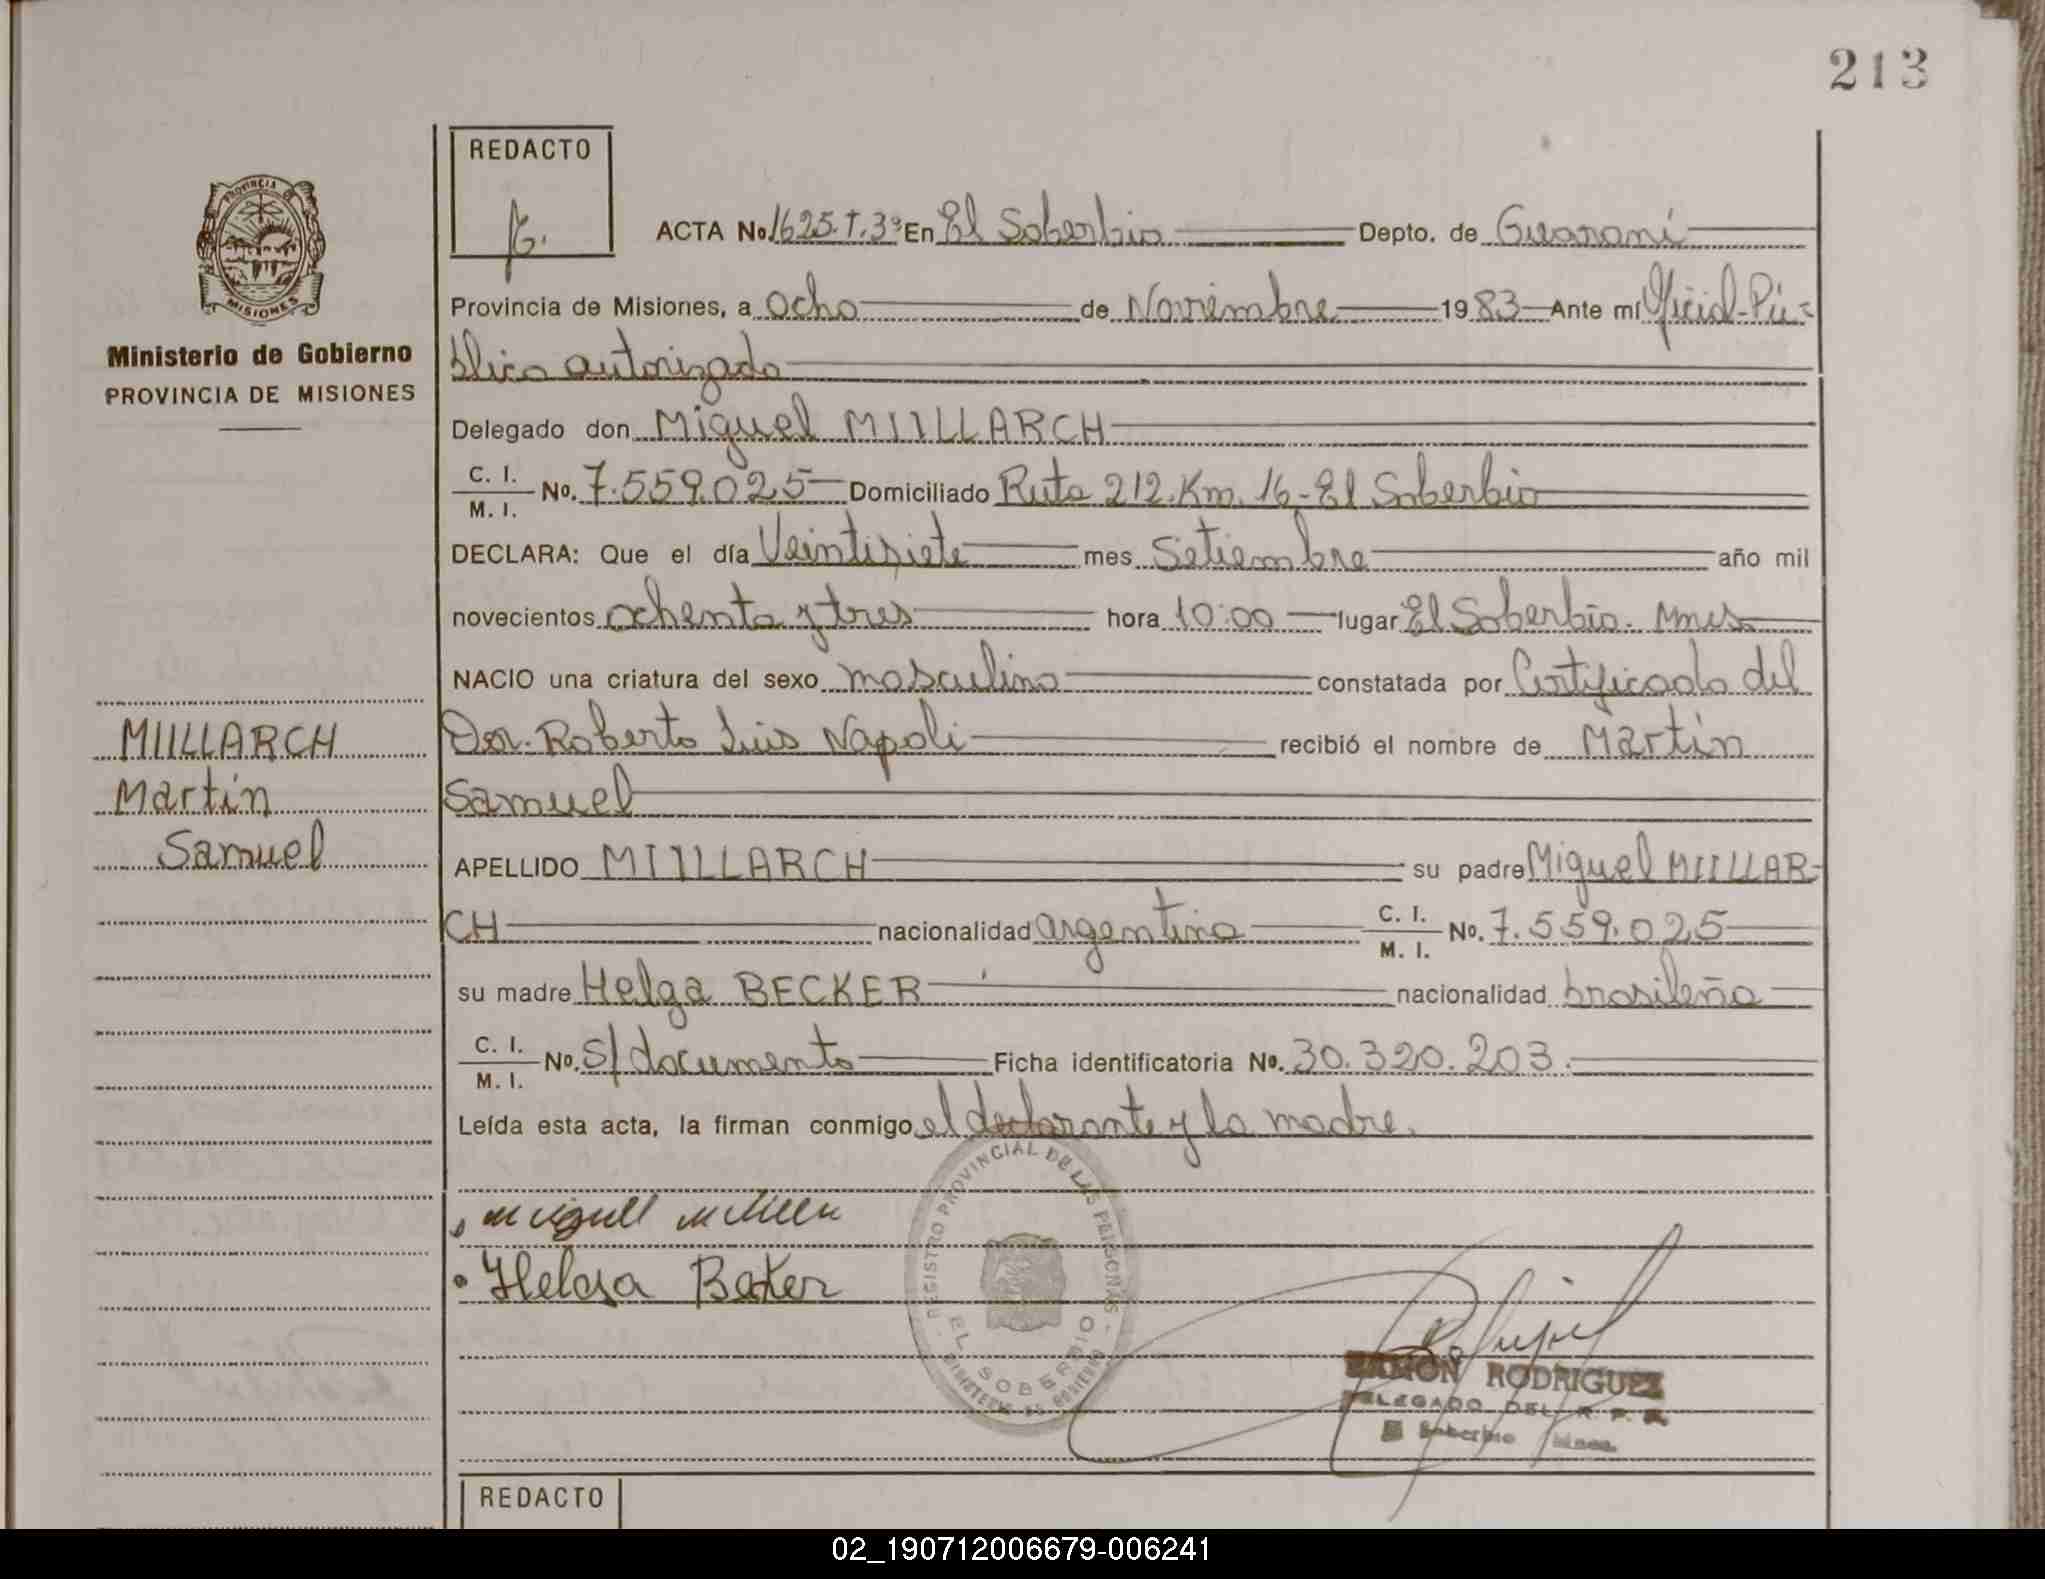 213
REDACTO
PROVINCIA
MISIONES
Ministerio de Gobierno
PROVINCIA DE MISIONES
ACTA No. 1625.T.3º En El Soberbio Depto. de Guaraní
Provincia de Misiones, a ocho de Noviembre 1983 Ante mí Oficial Pú=
blico autorizado
Delegado don Miguel MIILLARCH
C. I. / M. I. No. 7.559.025 Domiciliado Ruta 212. Km. 16-El Soberbio
DECLARA: Que el día Veintisiete mes Setiembre año mil
novecientos ochenta y tres hora 10:00 lugar El Soberbio. Mnes.
NACIO una criatura del sexo masculino constatada por Certificado del
Dor. Roberto Luis Napoli recibió el nombre de Martín
Samuel
MIILLARCH
Martín
Samuel
APELLIDO MIILLARCH su padre Miguel MIILLAR-
CH nacionalidad argentina C. I. / M. I. No. 7.559.025
su madre Helga BECKER nacionalidad brasileña
C. I. / M. I. No. S/documento Ficha identificatoria No. 30.320.203.
Leída esta acta, la firman conmigo el declarante y la madre.
Helga Beker
REGISTRO PROVINCIAL DE LAS PERSONAS
EL SOBERBIO
MINISTERIO DE GOBIERNO
RAMON RODRIGUEZ
DELEGADO DEL R. P. P.
El Soberbio Mnes.
REDACTO
02_190712006679-006241